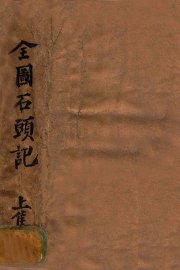 全圖石頭記
上隻